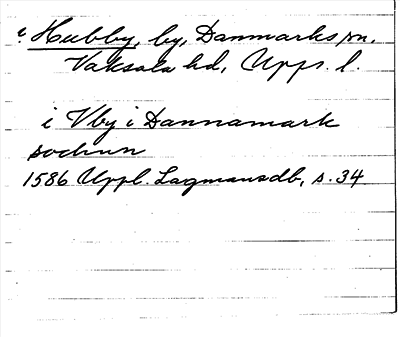 i Hubby, by, Danmarks sn.
Vaksala hd, Upps. l.
i Vby i Dannamark
sochnn
1586 Uppl. Lagmansdb, s. 34